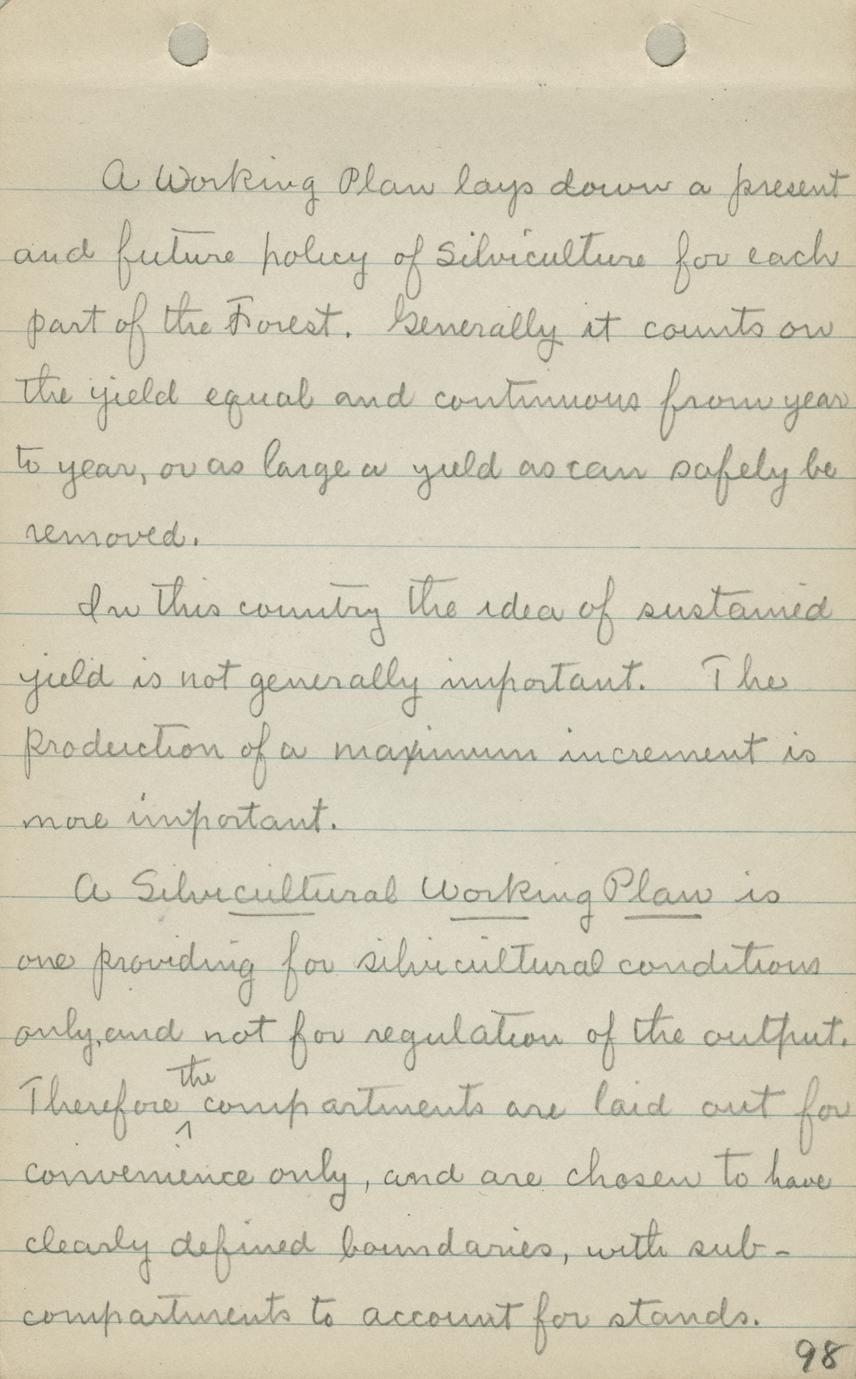 A Working Plan lays down a present
and future policy of Silviculture for each
part of the Forest. Generally it counts on
the yield equal and continuous from year
to year, or as large a yield as can safely be
removed.
In this country the idea of sustained
yield is not generally important. The
production of a maximum increment is
more important.
A Silvicultural Working Plan is
one providing for silvicultural conditions
only, and not for regulation of the output.
Therefore the compartments are laid out for
convenience only, and are chosen to have
clearly defined boundaries, with sub-
compartments to account for stands.
98